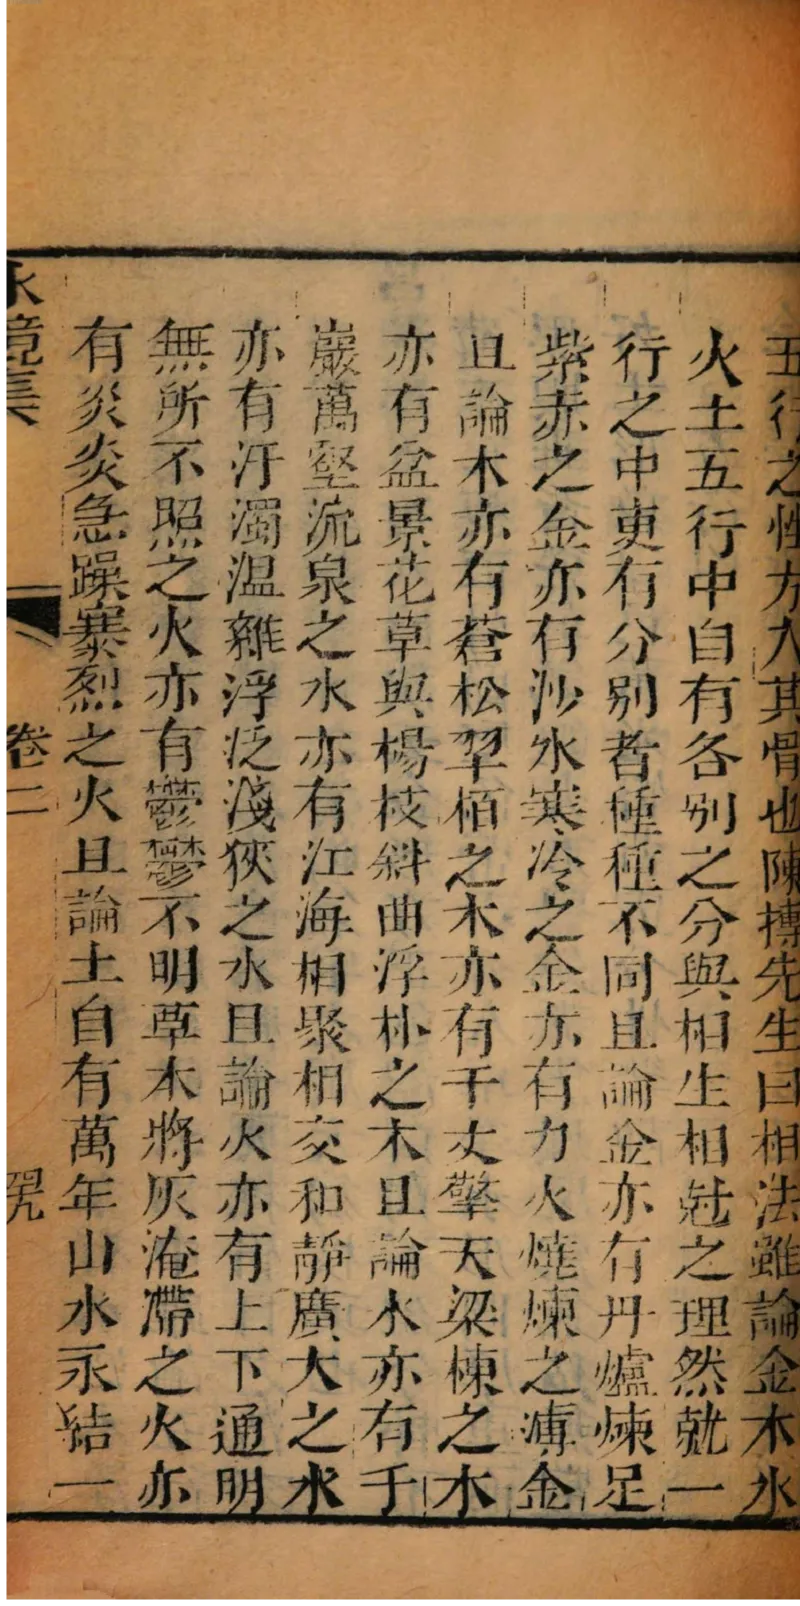 五行之性方人其骨也陳摶先生曰相法雖論金木水
火土五行中自有各别之分與相生相尅之理然就一
行之中更有分别者種種不同且論金亦有丹爐煉足
紫赤之金亦有沙水寒冷之金亦有力火燒煉之薄金
且論木亦有蒼松翠栢之木亦有千丈擎天梁棟之木
亦有盆景花草與楊枝斜曲浮朴之木且論水亦有千
巖萬壑流泉之水亦有江海相聚相交和靜廣大之水
亦有汙濁溫雜浮泛淺狹之水且論火亦有上下通明
無所不照之火亦有鬱鬱不明草木將灰淹滯之火亦
有炎炎急躁暴烈之火且論土自有萬年山水永結一
水鏡集
卷二
四九